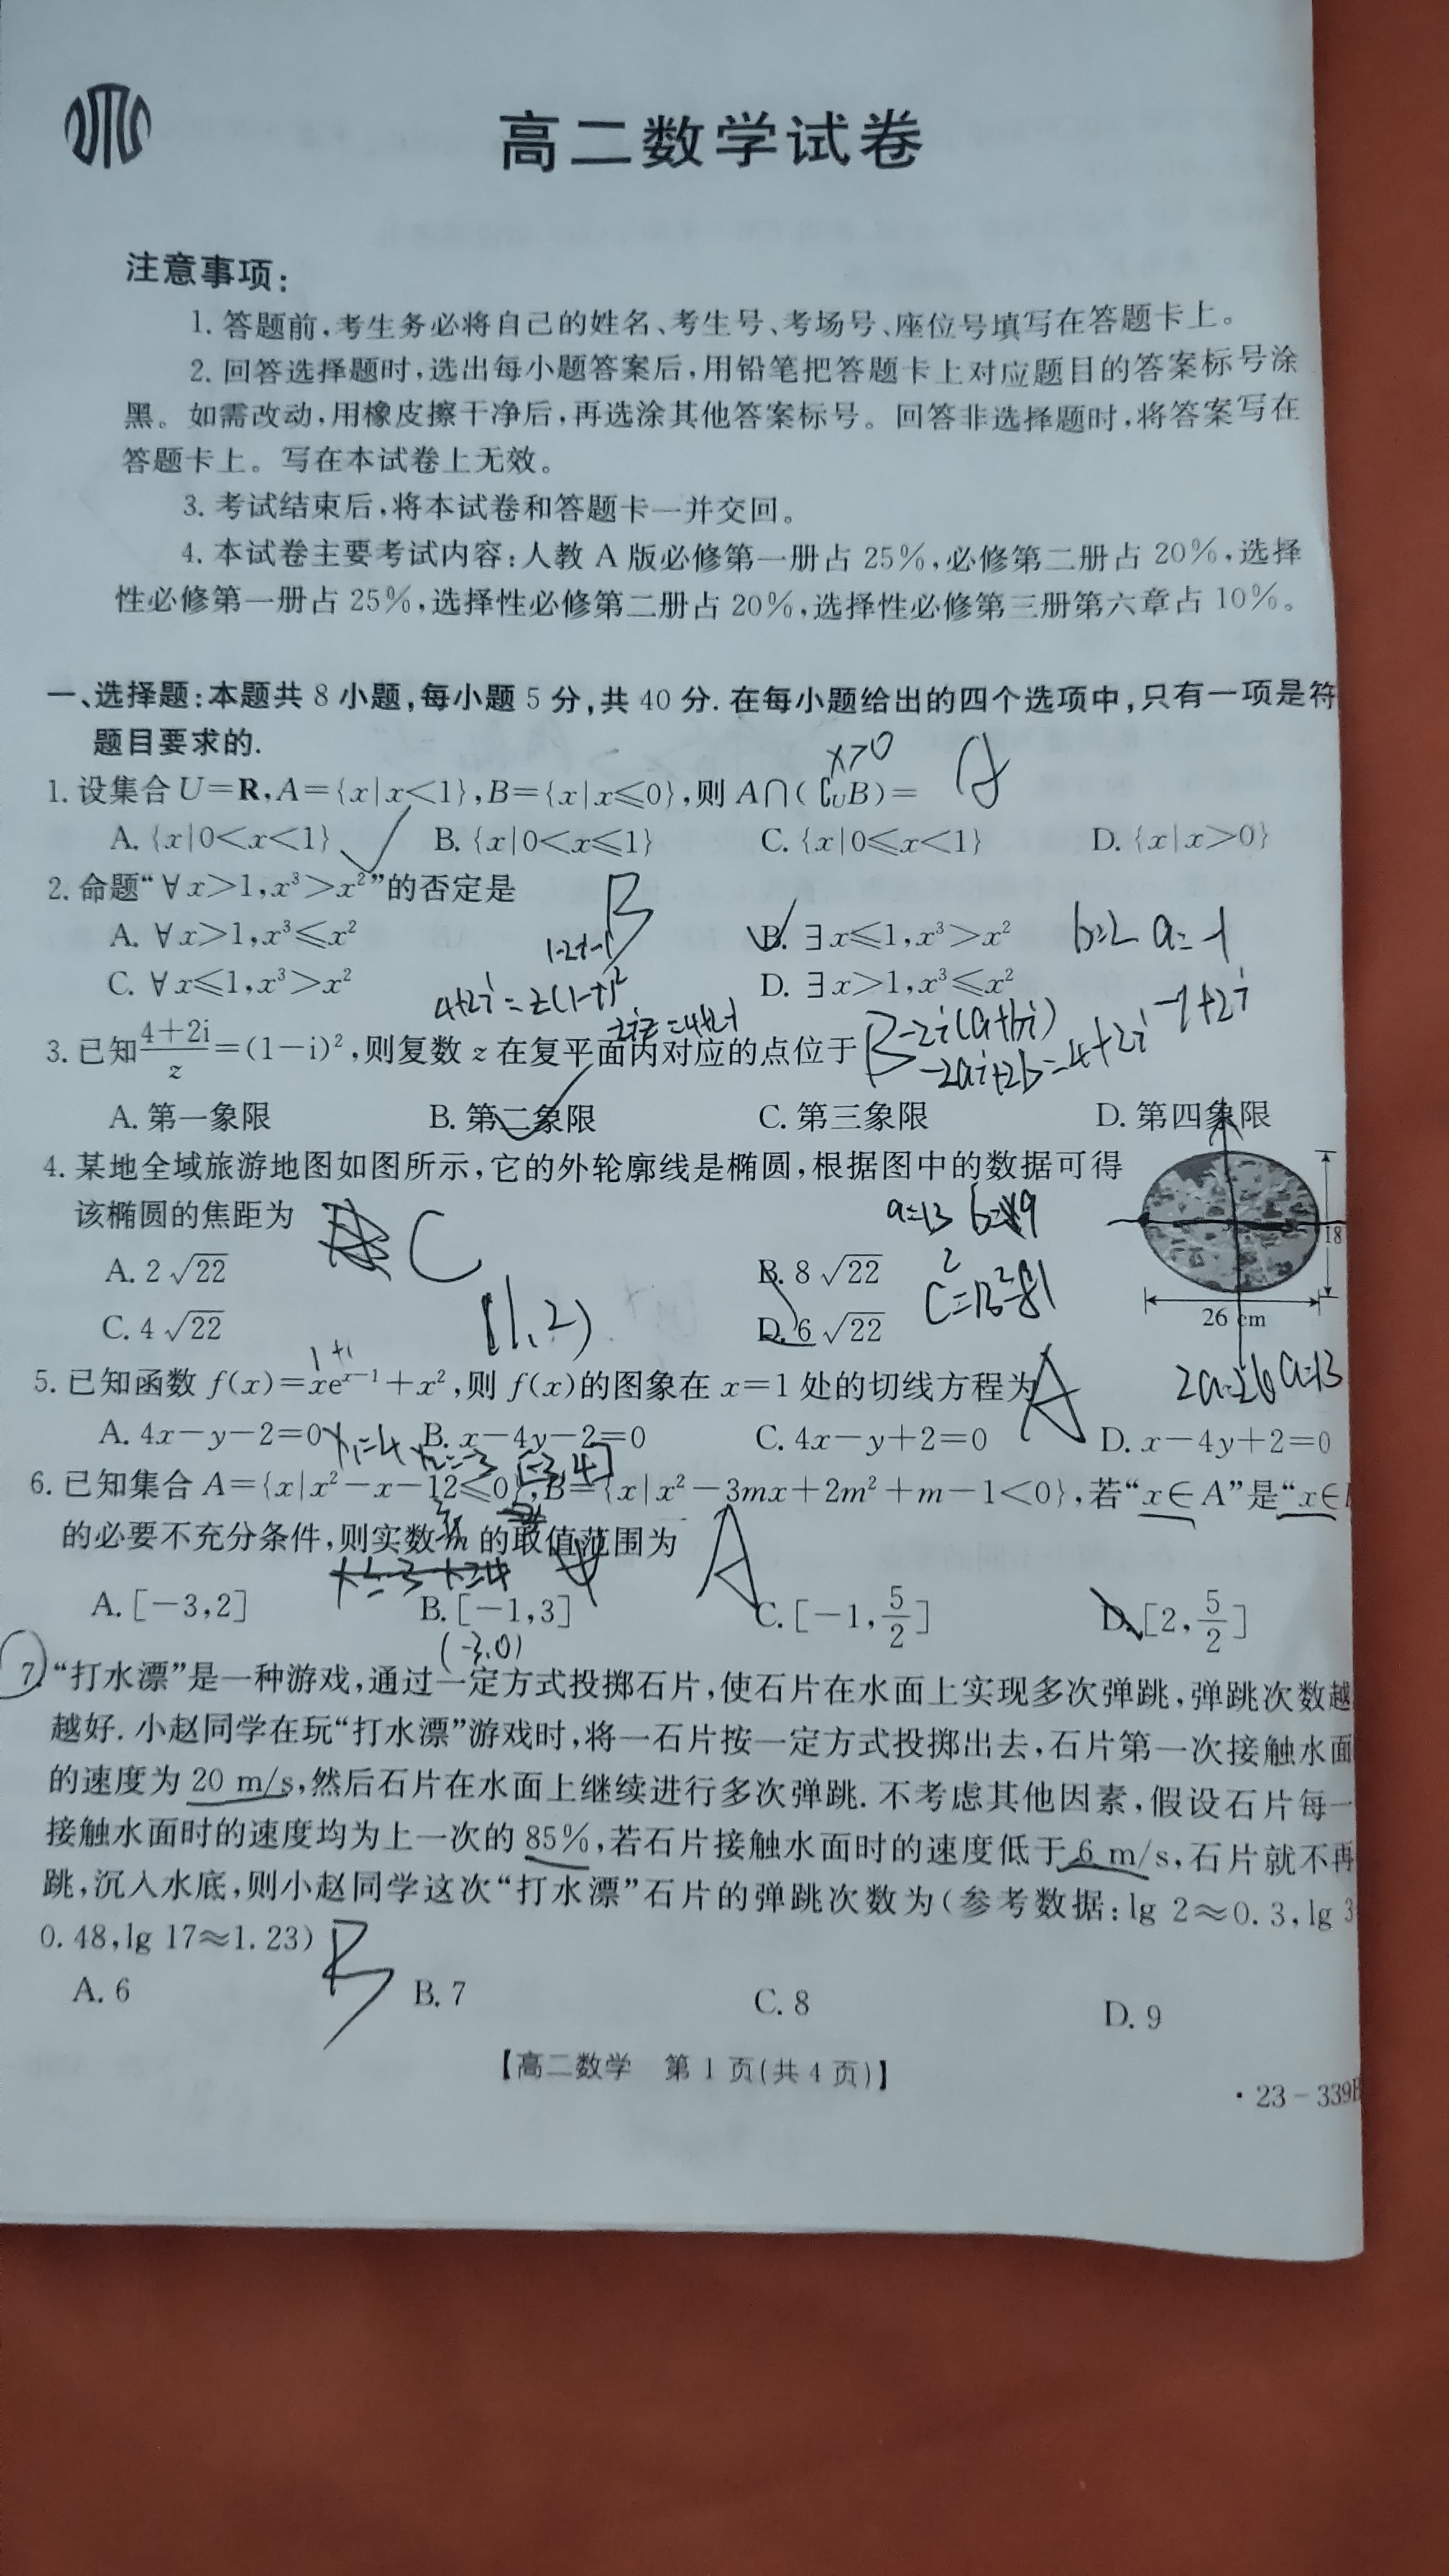 高二数学试卷
注意事项:
1. 答题前,考生务必将自己的姓名、考生号、考场号、座位号填写在答题卡上。
2. 回答选择题时,选出每小题答案后,用铅笔把答题卡上对应题目的答案标号涂
黑。如需改动,用橡皮擦干净后,再选涂其他答案标号。回答非选择题时,将答案写在
答题卡上。写在本试卷上无效。
3. 考试结束后,将本试卷和答题卡一并交回。
4. 本试卷主要考试内容:人教 A 版必修第一册占 25%,必修第二册占 20%,选择
性必修第一册占 25%,选择性必修第二册占 20%,选择性必修第三册第六章占 10%。
一、选择题:本题共 8 小题,每小题 5 分,共 40 分. 在每小题给出的四个选项中,只有一项是符
题目要求的.
x>0
1. 设集合 U=R,A={x|x<1},B={x|x≤0},则 A∩(∁UB)= A
A. {x|0<x<1} B. {x|0<x≤1} C. {x|0≤x<1} D. {x|x>0}
2. 命题“∀x>1,x³>x²”的否定是 B
A. ∀x>1,x³≤x² B. ∃x≤1,x³>x² b=2 a=-1
C. ∀x≤1,x³>x² D. ∃x>1,x³≤x²
4+2i=z(1-i)² -2i(a+bi) -1+2i
3. 已知(4+2i)/z=(1-i)²,则复数 z 在复平面内对应的点位于 B
-2ai+2b=4+2i
A. 第一象限 B. 第二象限 C. 第三象限 D. 第四象限
4. 某地全域旅游地图如图所示,它的外轮廓线是椭圆,根据图中的数据可得
该椭圆的焦距为 C a=13
18
A. 2√22 B. 8√22
26 cm
C. 4√22 D. 6√22
(1,2)
5. 已知函数 f(x)=xeˣ⁻¹+x²,则 f(x)的图象在 x=1 处的切线方程为 A
2a=26 a=13
A. 4x-y-2=0 B. x-4y-2=0 C. 4x-y+2=0 D. x-4y+2=0
x₁=4 x₂=-3 [-3,4]
6. 已知集合 A={x|x²-x-12≤0},B={x|x²-3mx+2m²+m-1<0},若“x∈A”是“x∈
的必要不充分条件,则实数 m 的取值范围为 A
A. [-3,2] B. [-1,3] C. [-1,5/2] D. [2,5/2]
(-3,0)
7. “打水漂”是一种游戏,通过一定方式投掷石片,使石片在水面上实现多次弹跳,弹跳次数越
越好. 小赵同学在玩“打水漂”游戏时,将一石片按一定方式投掷出去,石片第一次接触水面
的速度为 20 m/s,然后石片在水面上继续进行多次弹跳. 不考虑其他因素,假设石片每一
接触水面时的速度均为上一次的 85%,若石片接触水面时的速度低于 6 m/s,石片就不再
跳,沉入水底,则小赵同学这次“打水漂”石片的弹跳次数为(参考数据:lg 2≈0.3,lg 3
0.48,lg 17≈1.23) B
A. 6 B. 7 C. 8 D. 9
【高二数学 第 1 页(共 4 页)】
·23-339B